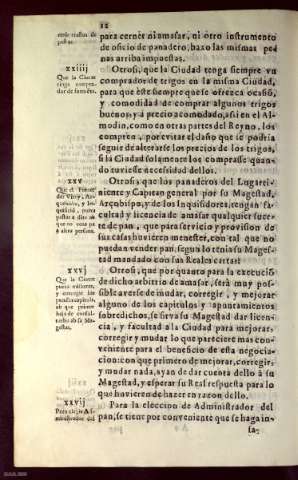 12
para cerner ni amasar, ni otro instrumento
de oficio de panadero, baxo las mismas pe-
nas arriba impuestas.
xxiiij
Que la Ciutat
tenga compra-
dor de forméts.
Otrosi, que la Ciudad tenga siempre vn
comprador de trigos de la misma Ciudad,
para que este siempre que se ofrezca ocasió,
y comodidad de comprar algunos trigos
buenos, y a precio acomodado, asi en el Al-
modin, como en otras partes del Reyno, los
compren, por euitar el daño que se podria
seguir de alterarse los precios de los trigos,
si la Ciudad solamente los comprasse quan-
do tuuiesse necesidad dellos.
xxv
Otrosi, que los panaderos del Lugartei-
niente y Capitan general por su Magestad,
Arçobispo, y de los Inquisidores, tengan fa-
cultad y licencia de amasar qualquier suer-
te de pan, que para seruicio y prouision de
sus casas huuieren menester, con tal que no
puedan vender pan, segun lo tenia su Mages-
tad mandado con sus Reales cartas.
xxvj
Que la Ciutat
puxa
Otrosi, que por quanto para la execució
de dicho arbitrio de amasar, será muy po-
sible auerse de mudar, corregir, y mejorar
alguno de los capitulos y apuntamientos
sobredichos, se sirua su Magestad dar licen-
cia, y facultad a la Ciudad para mejorar,
corregir y mudar lo que pareciere mas con-
ueniente para el beneficio de esta negocia-
cion: con que primero de mejorar, corregir,
y mudar nada, ayan de dar cuenta dello à su
Magestad, y esperar su Real respuesta para lo
que huuieren de hazer en razon dello.
xxvij
Para elegir Ad-
ministrador del
Para la eleccion de Administrador del
pan, se tiene por conueniente que se haga in-
sa-